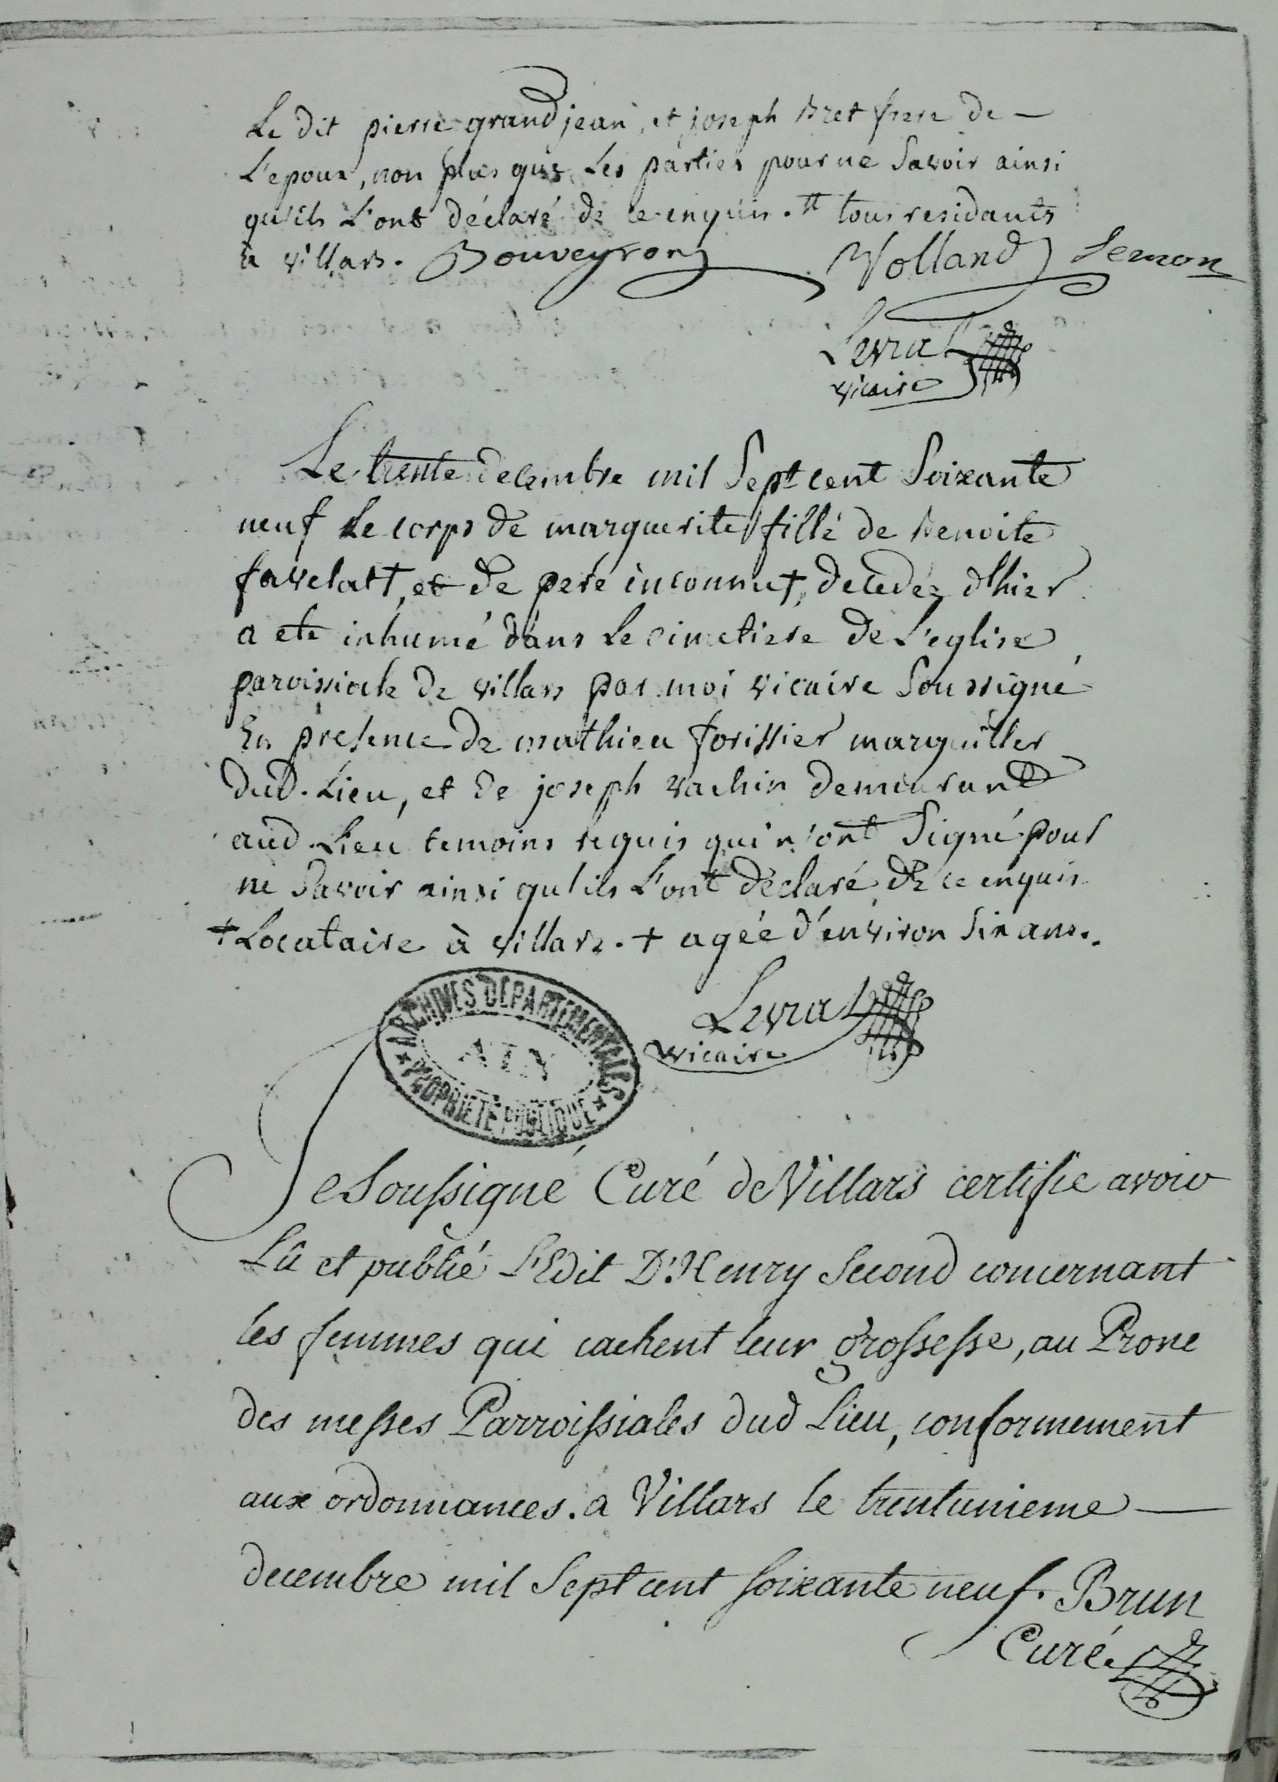 Le dit pierre grandjean, et joseph Bret frere de —
L'epoux, non plus que Les parties pour ne Savoir ainsi
qu'ils L'ont déclaré de ce enquis. tt tous residants
à villars. Bouveyron Volland Lemon
Levrat
vicaire
Le trente decembre mil Sept cent Soixante
neuf Le corps de marguerite fille de Benoite
favelatt, et de pere inconnut, decedez d'hier
a ete inhumé dans Le cimetiere de L'eglise
paroissiale de villars par moi vicaire Soussigné
En presence de mathieu forissier marguiller
dud. Lieu, et de joseph vachin demeurant
aud. Lieu temoins requis qui n'ont Signé pour
ne Savoir ainsi qu'ils L'ont déclaré de ce enquis
+ Locataire à villars. + agée d'environ Six ans.
Levrat
vicaire
ARCHIVES DÉPARTEMENTALES
AIN
PROPRIÉTÉ PUBLIQUE
Je Soussigné Curé de Villars certifie avoir
Lû et publié L'Edit D'Henry Second concernant
les femmes qui cachent leur grossesse, au Prone
des messes Parroissiales dud Lieu, conformement
aux ordonnances. a Villars le trentunieme —
decembre mil Sept cent soixante neuf. Brun
Curé